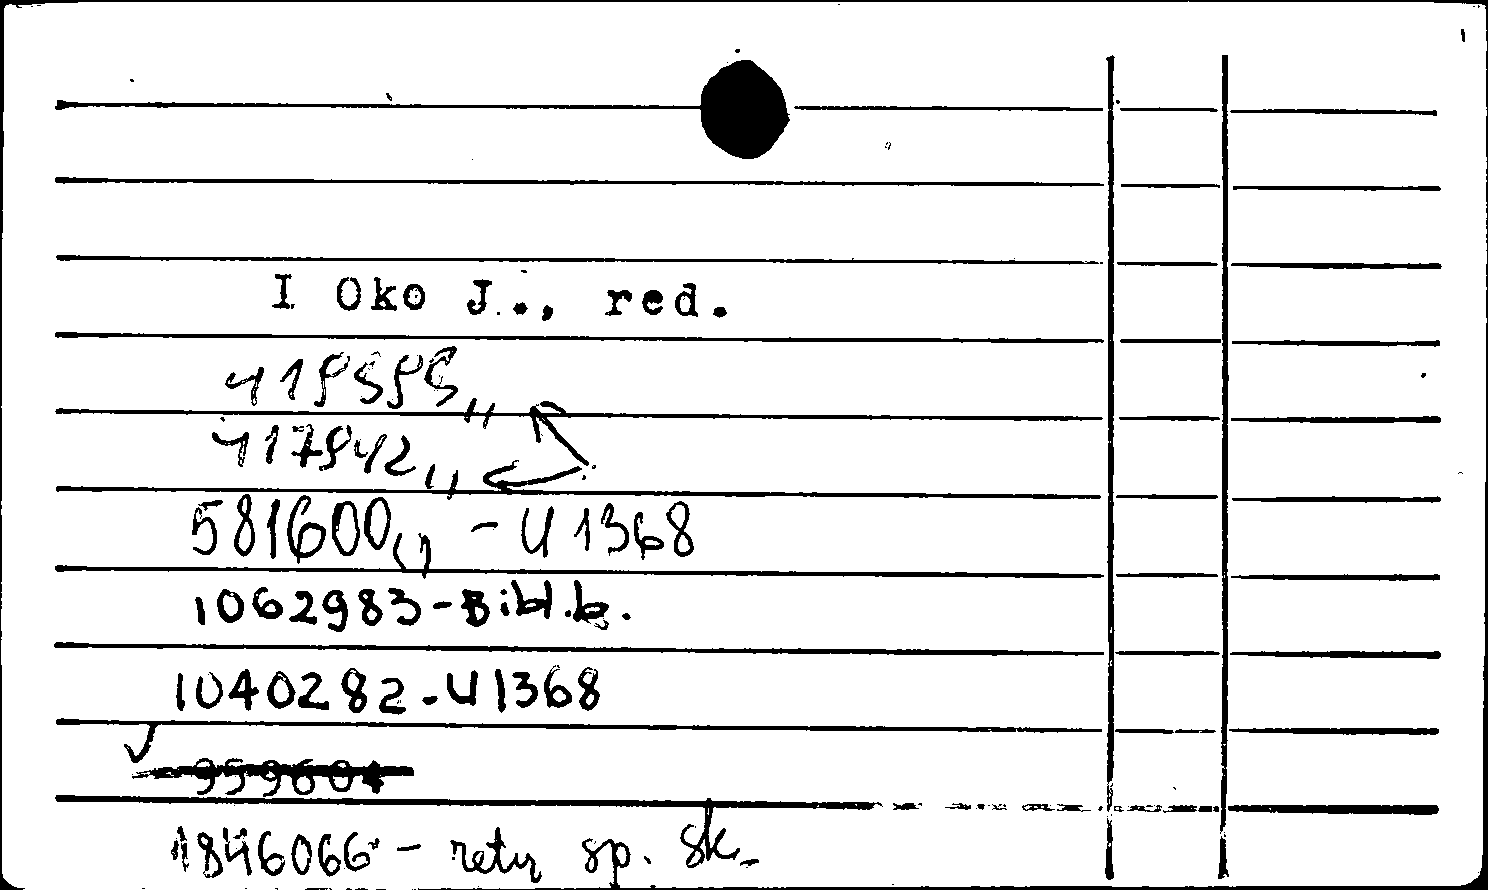 I Oko J., red.
419595,,
417942,,
581600,, - U 1368
1062983-Bibl.b.
1040282-U1368
959604
1846066 - retur sp. sk.